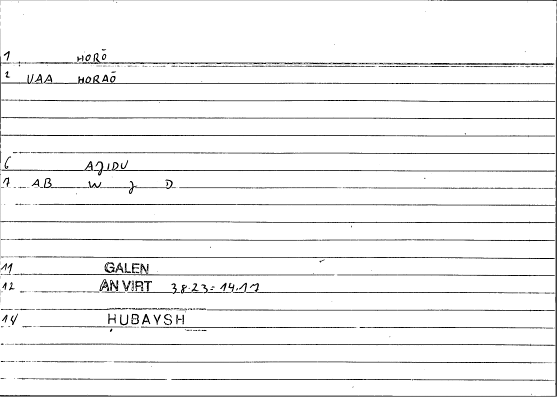 1 HORŌ
2 UAA HORAŌ
6 AJIDU
7 AB W J D
11 GALEN
12 AN VIRT 38.23 = 14.17
14 HUBAYSH